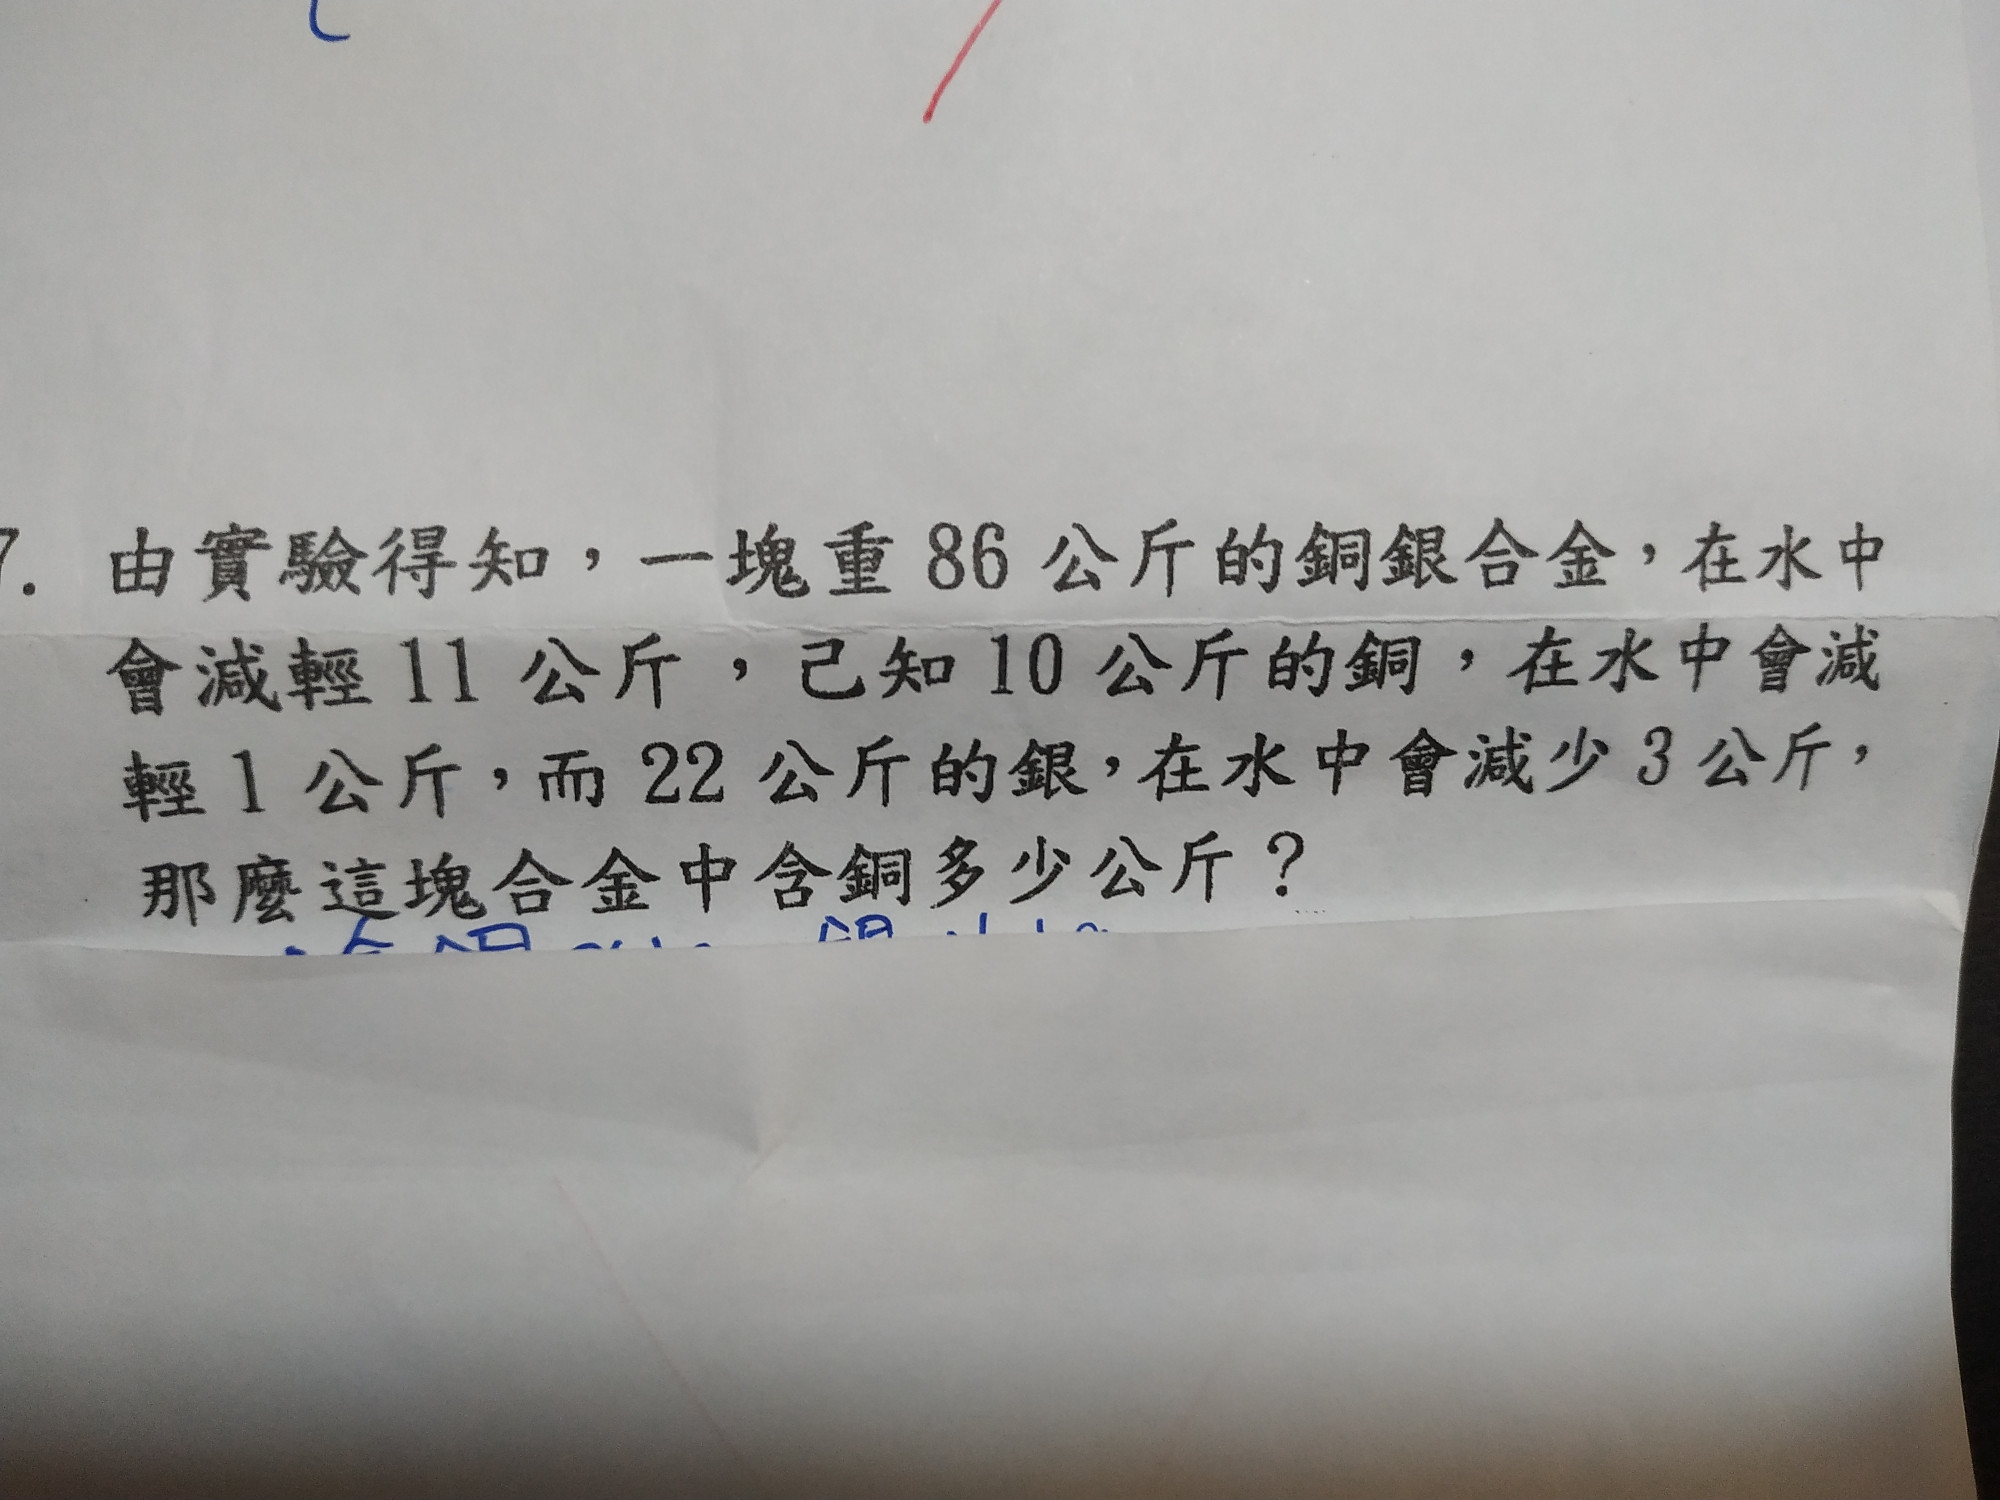 7. 由實驗得知，一塊重 86 公斤的銅銀合金，在水中
會減輕 11 公斤，己知 10 公斤的銅，在水中會減
輕 1 公斤，而 22 公斤的銀，在水中會減少 3 公斤，
那麼這塊合金中含銅多少公斤？